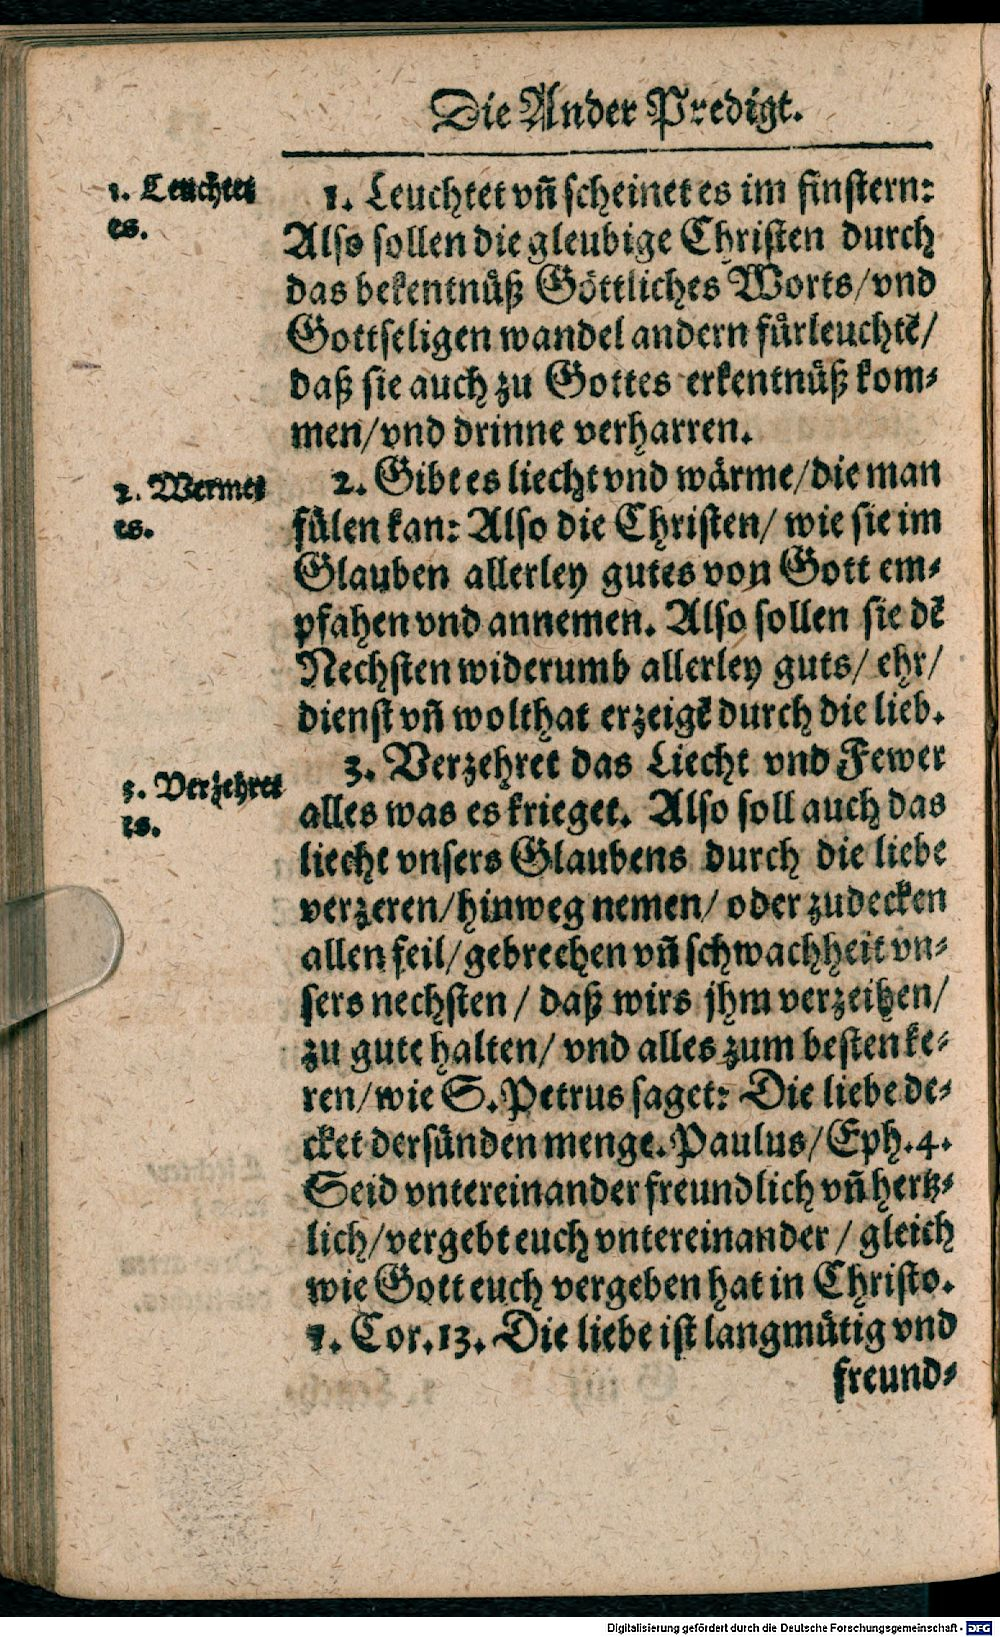 Die Ander Predigt.
1. Leuchtet
es.
1. Leuchtet vñ scheinet es im finstern:
Also sollen die gleubige Christen durch
das bekentnüß Göttliches Worts/vnd
Gottseligen wandel andern fürleuchtẽ/
daß sie auch zu Gottes erkentnüß kom-
men/vnd drinne verharren.
2. Wermet
es.
2. Gibt es liecht vnd wärme/die man
fülen kan: Also die Christen/ wie sie im
Glauben allerley gutes von Gott em-
pfahen vnd annemen. Also sollen sie dẽ
Nechsten widerumb allerley guts/ ehr/
dienst vñ wolthat erzeigẽ durch die lieb.
3. Verzehret
es.
3. Verzehret das Liecht vnd Fewer
alles was es krieget. Also soll auch das
liecht vnsers Glaubens durch die liebe
verzeren/hinweg nemen/ oder zudecken
allen feil/gebrechen vñ schwachheit vn-
sers nechsten / daß wirs jhm verzeihen/
zu gute halten/ vnd alles zum besten ke-
ren/wie S. Petrus saget: Die liebe de-
cket der sünden menge. Paulus/ Eph. 4.
Seid vntereinander freundlich vñ hertz-
lich/vergebt euch vntereinander / gleich
wie Gott euch vergeben hat in Christo.
1. Cor. 13. Die liebe ist langmütig vnd
freund-
Digitalisierung gefördert durch die Deutsche Forschungsgemeinschaft - DFG